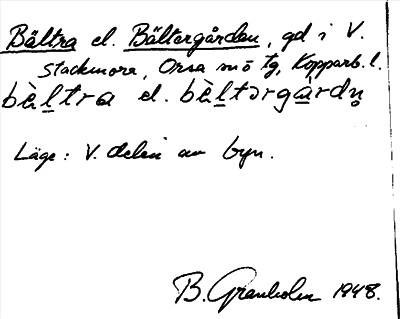 Bältra el. Bältergården, gd i V.
Stackmora, Orsa sn o tg, Kopparb. l.
bæ̀ltra el. bæ̀ltərgàrdn̥
Läge: V. delen av byn.
B. Granholm 1948.